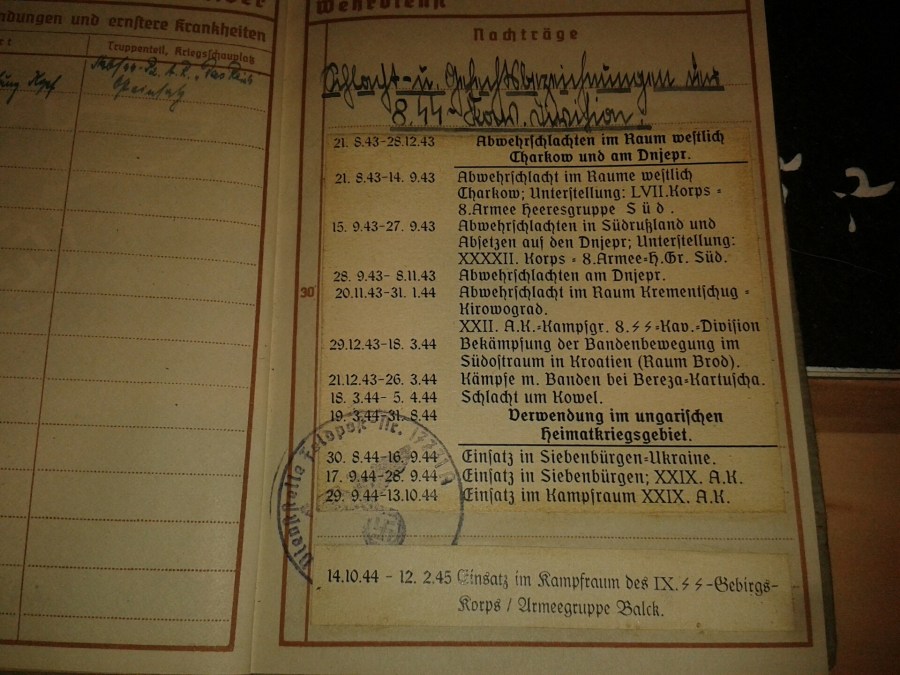 ndungen und ernstere Krankheiten
Truppenteil, Kriegsschauplatz
Wehrdienst
Nachträge
Schlacht- u. Gefechtsbezeichnungen der
8. SS-Kav. Division.
21. 8.43-28.12.43 Abwehrschlachten im Raum westlich
Charkow und am Dnjepr.
21. 8.43-14. 9.43 Abwehrschlacht im Raume westlich
Charkow; Unterstellung: LVII.Korps =
8.Armee Heeresgruppe Süd.
15. 9.43-27. 9.43 Abwehrschlachten in Südrußland und
Absetzen auf den Dnjepr; Unterstellung:
XXXXII. Korps = 8.Armee=H.Gr. Süd.
28. 9.43- 8.11.43 Abwehrschlachten am Dnjepr.
30
20.11.43-31. 1.44 Abwehrschlacht im Raum Krementschug =
Kirowograd.
XXII. A.K.=Kampfgr. 8.SS=Kav.=Division
29.12.43-18. 3.44 Bekämpfung der Bandenbewegung im
Südostraum in Kroatien (Raum Brod).
21.12.43-26. 3.44 Kämpfe m. Banden bei Bereza=Kartuscha.
18. 3.44- 5. 4.44 Schlacht um Kowel.
19. 3.44-31. 8.44 Verwendung im ungarischen
Heimatkriegsgebiet.
30. 8.44-16. 9.44 Einsatz in Siebenbürgen=Ukraine.
17. 9.44-28. 9.44 Einsatz in Siebenbürgen; XXIX. A.K
29. 9.44-13.10.44 Einsatz im Kampfraum XXIX. A.K.
Dienststelle Feldpost-Nr.
14.10.44 - 12. 2.45 Einsatz im Kampfraum des IX.SS-Gebirgs-
Korps / Armeegruppe Balck.